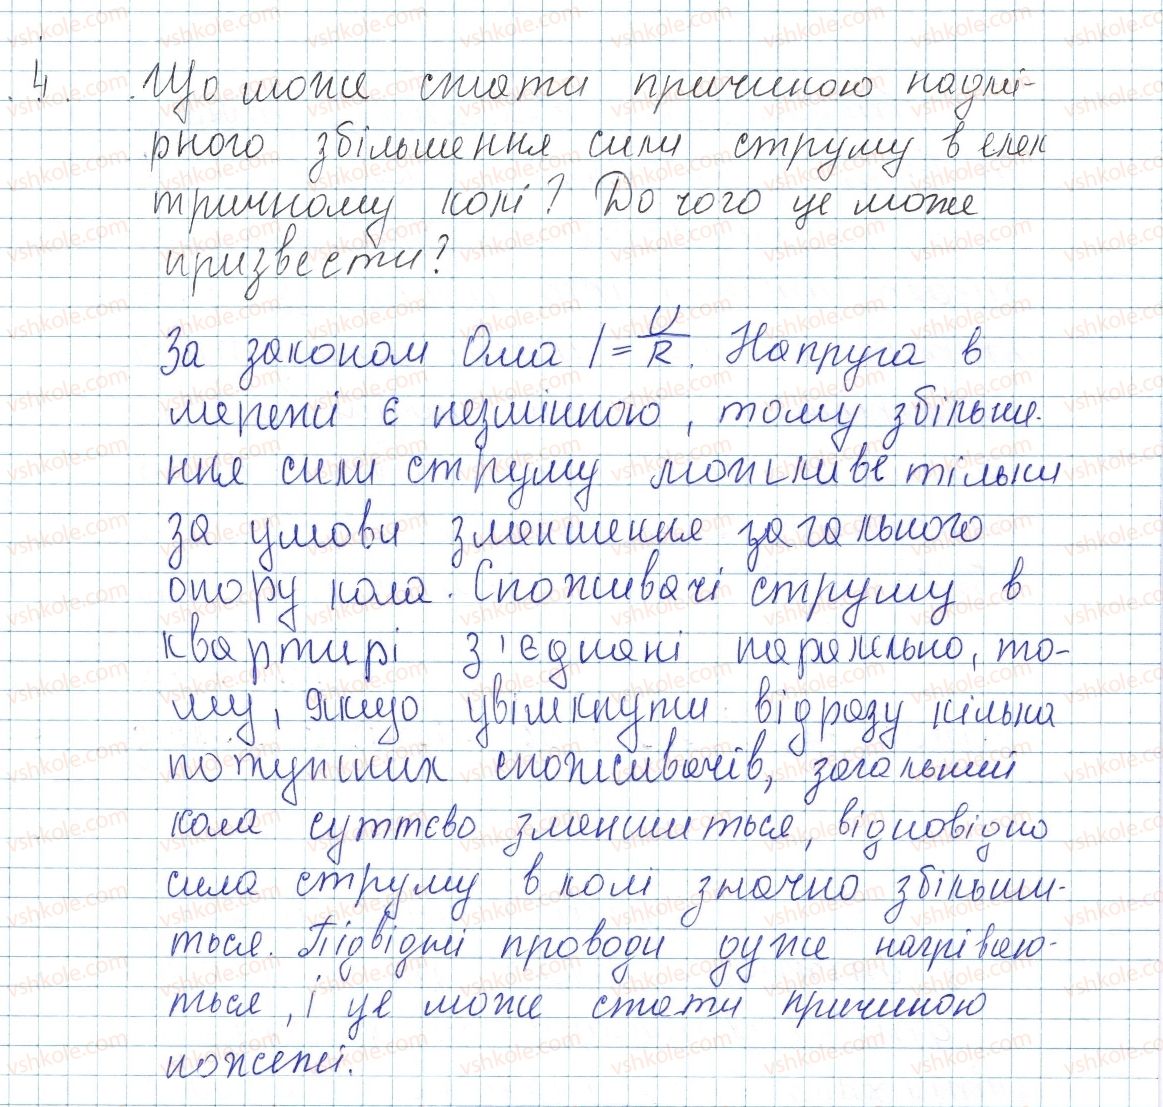 4. Що може стати причиною надмі-
рного збільшення сили струму в елек
тричному колі? До чого це може
призвести?
За законом Ома I = U/R. Напруга в
мережі є незмінною, тому збільше-
ння сили струму можливе тільки
за умови зменшення загального
опору кола. Споживачі струму в
квартирі з'єднані паралельно, то-
му, якщо увімкнути відразу кілька
потужних споживачів, загальний
кола суттєво зменшиться, відповідно
сила струму в колі значно збільши-
ться. Підвідні проводи дуже нагріваю-
ться, і це може стати причиною
пожежі.